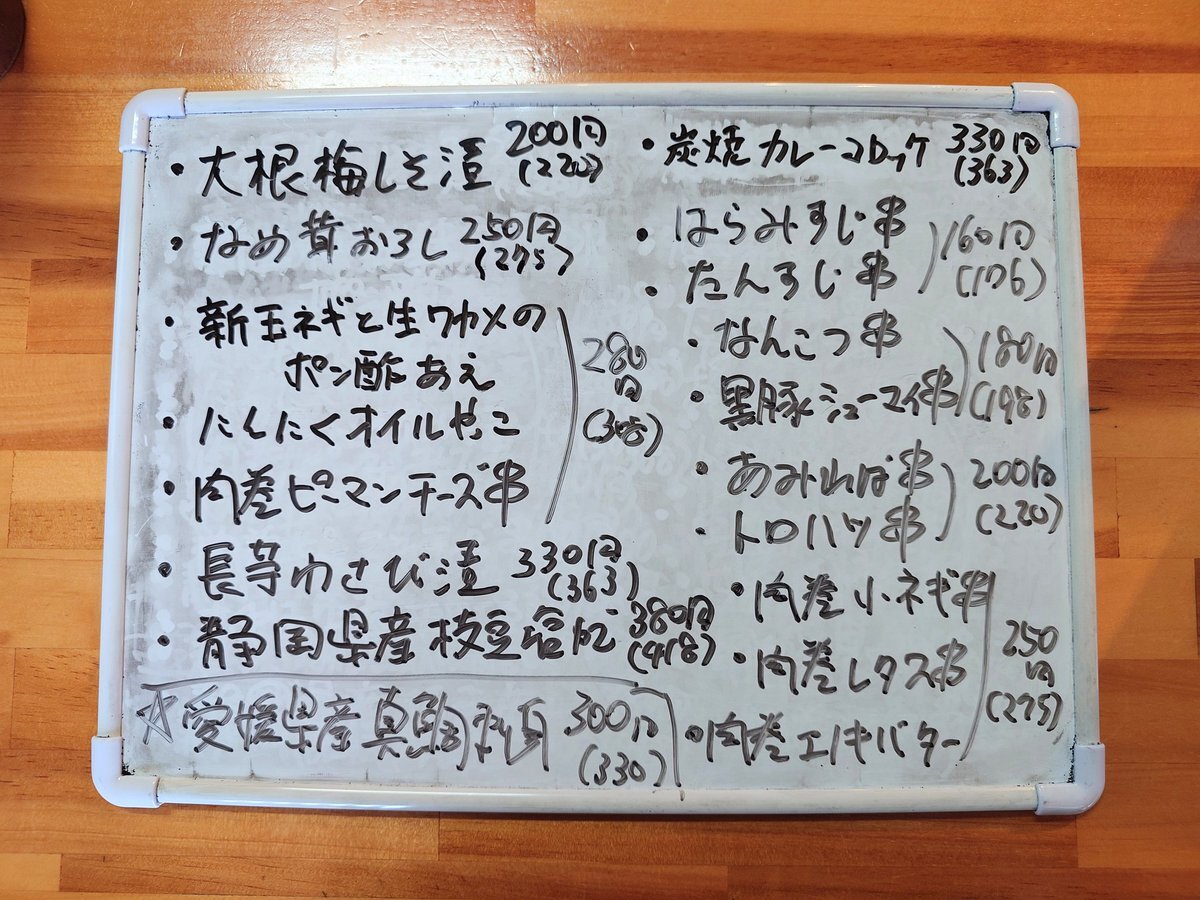 ・大根梅しそ漬 200円
(220)
・なめ茸おろし 250円
(275)
・新玉ネギと生ワカメの
ポン酢あえ
・にんにくオイルやっこ
・肉巻ピーマンチーズ串
280
円
(308)
・長芋わさび漬 330円
(363)
・静岡県産枝豆塩ゆで 380円
(418)
☆愛媛県産真鯛刺身 300円
(330)
・炭焼カレーコロッケ 330円
(363)
・はらみすじ串
・たんすじ串
160円
(176)
・なんこつ串
・黒豚シューマイ串
180円
(198)
・あみればー串
・トロハツ串
200円
(220)
・肉巻小ネギ串
・肉巻レタス串
・肉巻エノキバター
250
円
(275)